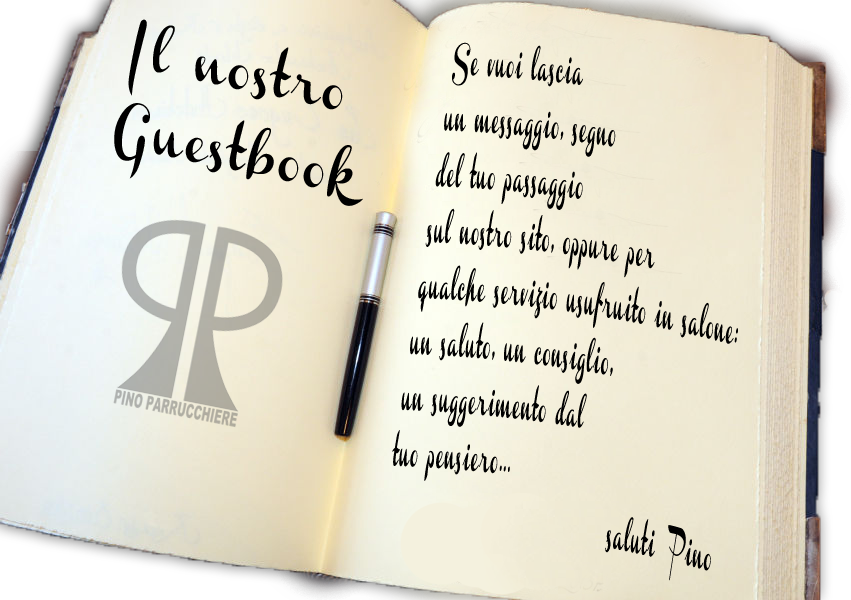 Il nostro
Guestbook
PINO PARRUCCHIERE
Se vuoi lascia
un messaggio, segno
del tuo passaggio
sul nostro sito, oppure per
qualche servizio usufruito in salone:
un saluto, un consiglio,
un suggerimento dal
tuo pensiero...
saluti Pino